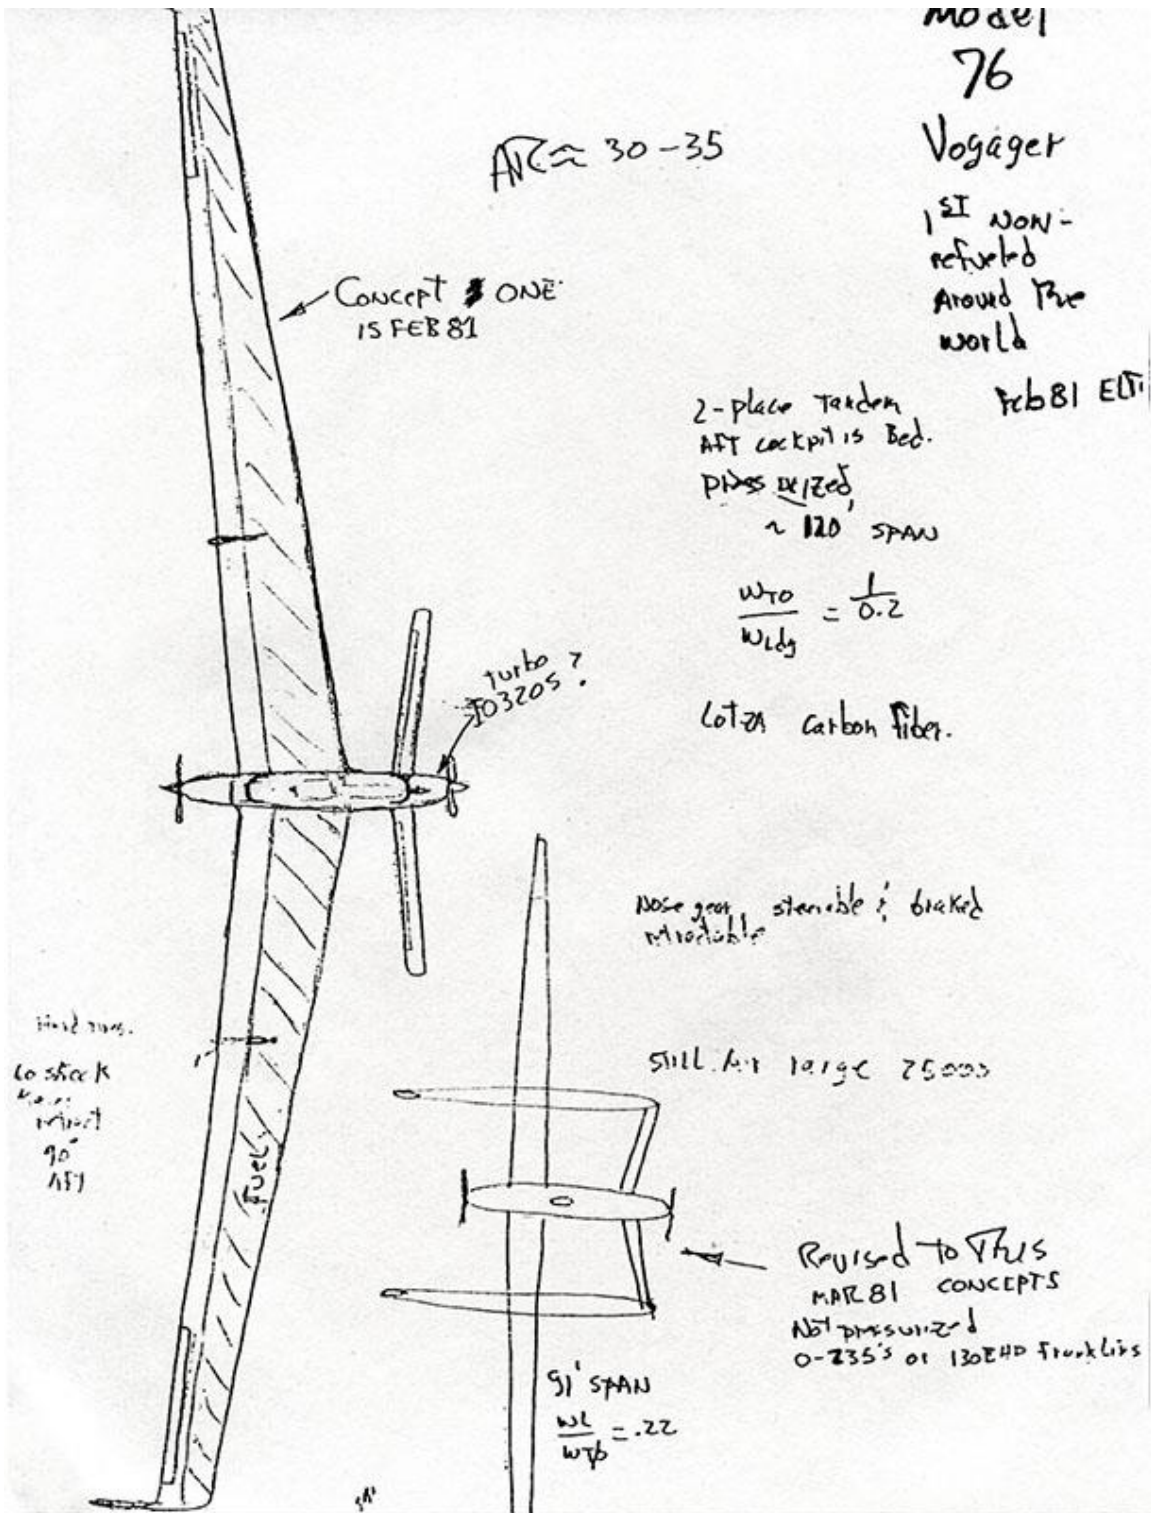 Model
76
Voyager
1ST NON-
refueled
Around The
world
Feb 81
AR ≈ 30-35
CONCEPT ONE
15 FEB 81
2-place Tandem
AFT cockpit is Bed.
pressurized
~ 120' SPAN
WTO / WLdg = 1 / 0.2
turbo
IO320S ?
LOTZA carbon fiber.
Nose gear, steerable & braked
retractable
Hard
retract
90°
AFT
Still Air range 25000
FUEL
Revised To This
MAR 81 CONCEPTS
Not pressurized
O-235's or 130 HP Franklins
91' SPAN
WL / WTO = .22